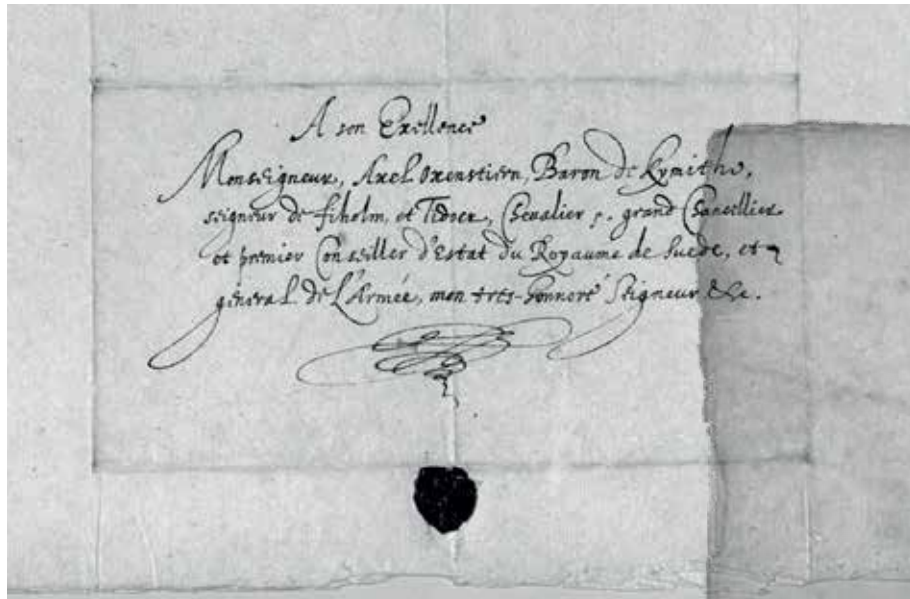 A son Exellence
Monseigneur, Axel Oxenstiern, Baron de Kymithe,
seigneur de fiholm, et Tidoer, Chevalier, grand Chancellier
et premier Conseiller d'Estat du Royaume de Suede, et
general de L'Armée, mon tres-honnoré Seigneur &c.